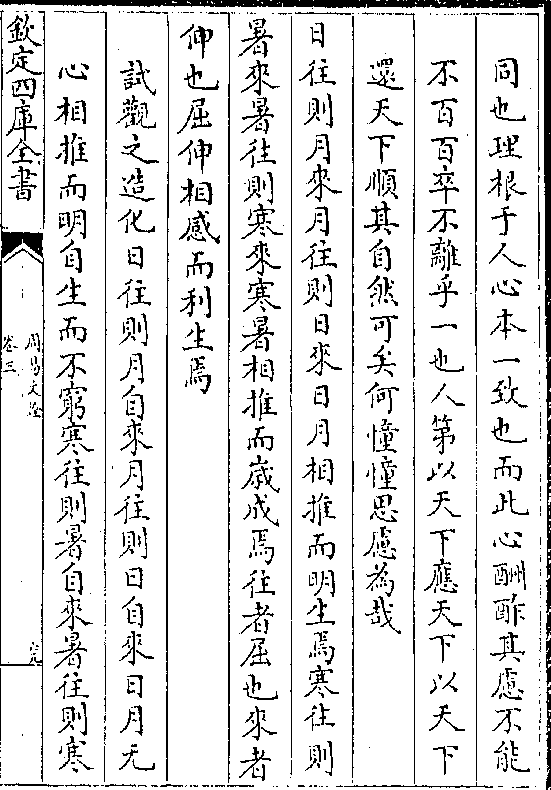 同也理根于人心本一致也而此心酬酢其慮不能
不百百卒不離乎一也人第以天下應天下以天下
還天下順其自然可矣何憧憧思慮為哉
日往則月來月往則日來日月相推而明生焉寒往則
暑來暑往則寒來寒暑相推而嵗成焉往者屈也來者
伸也屈伸相感而利生焉
試觀之造化日往則月自來月往則日自來日月无
心相推而明自生而不窮寒往則暑自來暑往則寒
欽定四庫全書
卷三